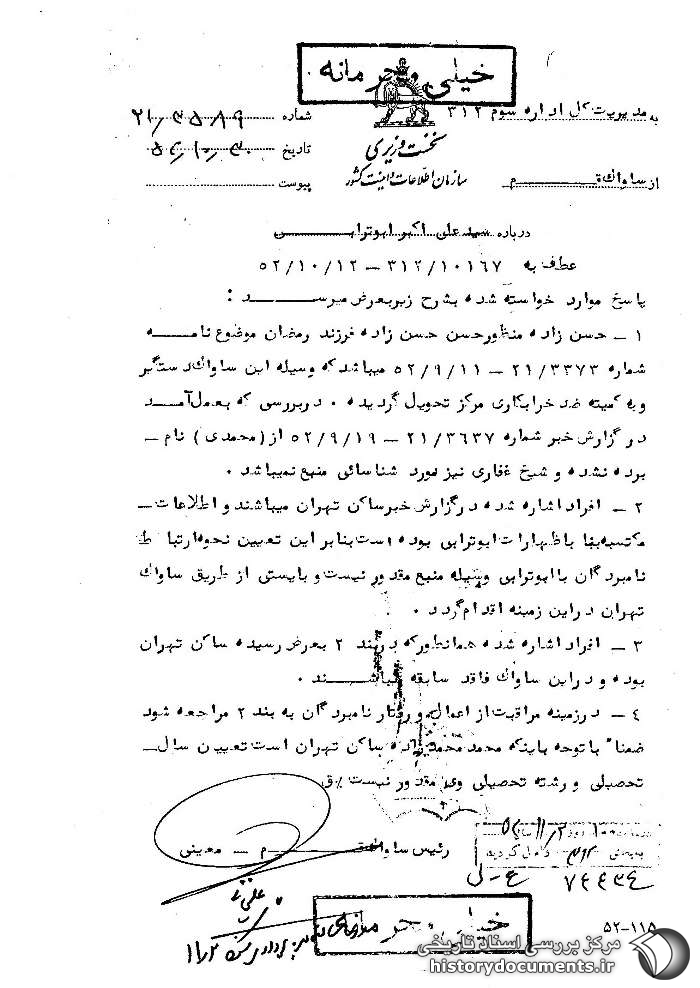 خیلی محرمانه
به مدیریت کل اداره سوم ۳۱۲
شماره ۲۱/۳۵۸۹
نخست وزیری
تاریخ
سازمان اطلاعات و امنیت کشور
از ساواک قم
پیوست
درباره سید علی اکبر ابوترابی
عطف به ۳۱۲/۱۰۱۶۷ - ۵۲/۱۰/۱۲
پاسخ موارد خواسته شده بشرح زیر بعرض میرسد :
۱ - حسن زاده منظور حسن حسن زاده فرزند رمضان موضوع نامه
شماره ۲۱/۳۳۷۳ - ۵۲/۹/۱۱ میباشد که وسیله این ساواک دستگیر
و به کمیته ضد خرابکاری مرکز تحویل گردیده . در بررسی که بعمل آمد
در گزارش خبر شماره ۲۱/۳۶۳۷ - ۵۲/۹/۱۹ از (محمدی) نام -
برده نشده و شیخ غفاری نیز مورد شناسائی منبع نمیباشد .
۲ - افراد اشاره شده در گزارش خبر ساکن تهران میباشند و اطلاعات -
مکتسبه بنا باظهارات ابوترابی بوده است بنابراین تعیین نحوه ارتباط
نامبردگان با ابوترابی وسیله منبع مقدور نیست و بایستی از طریق ساواک
تهران در این زمینه اقدام گردد .
۳ - افراد اشاره شده همانطور که در بند ۲ بعرض رسیده ساکن تهران
بوده و در این ساواک فاقد سابقه میباشند .
۴ - در زمینه مراقبت از اعمال و رفتار نامبردگان به بند ۲ مراجعه شود
ضمنا" با توجه باینکه محمد محمدزاده ساکن تهران است تعیین سال -
تحصیلی و رشته تحصیلی وی مقدور نیست ٪ ق
رئیس ساواک قم - معینی
خیلی محرمانه
۵۲-۱۱۵
مرکز بررسی اسناد تاریخی
historydocuments.ir